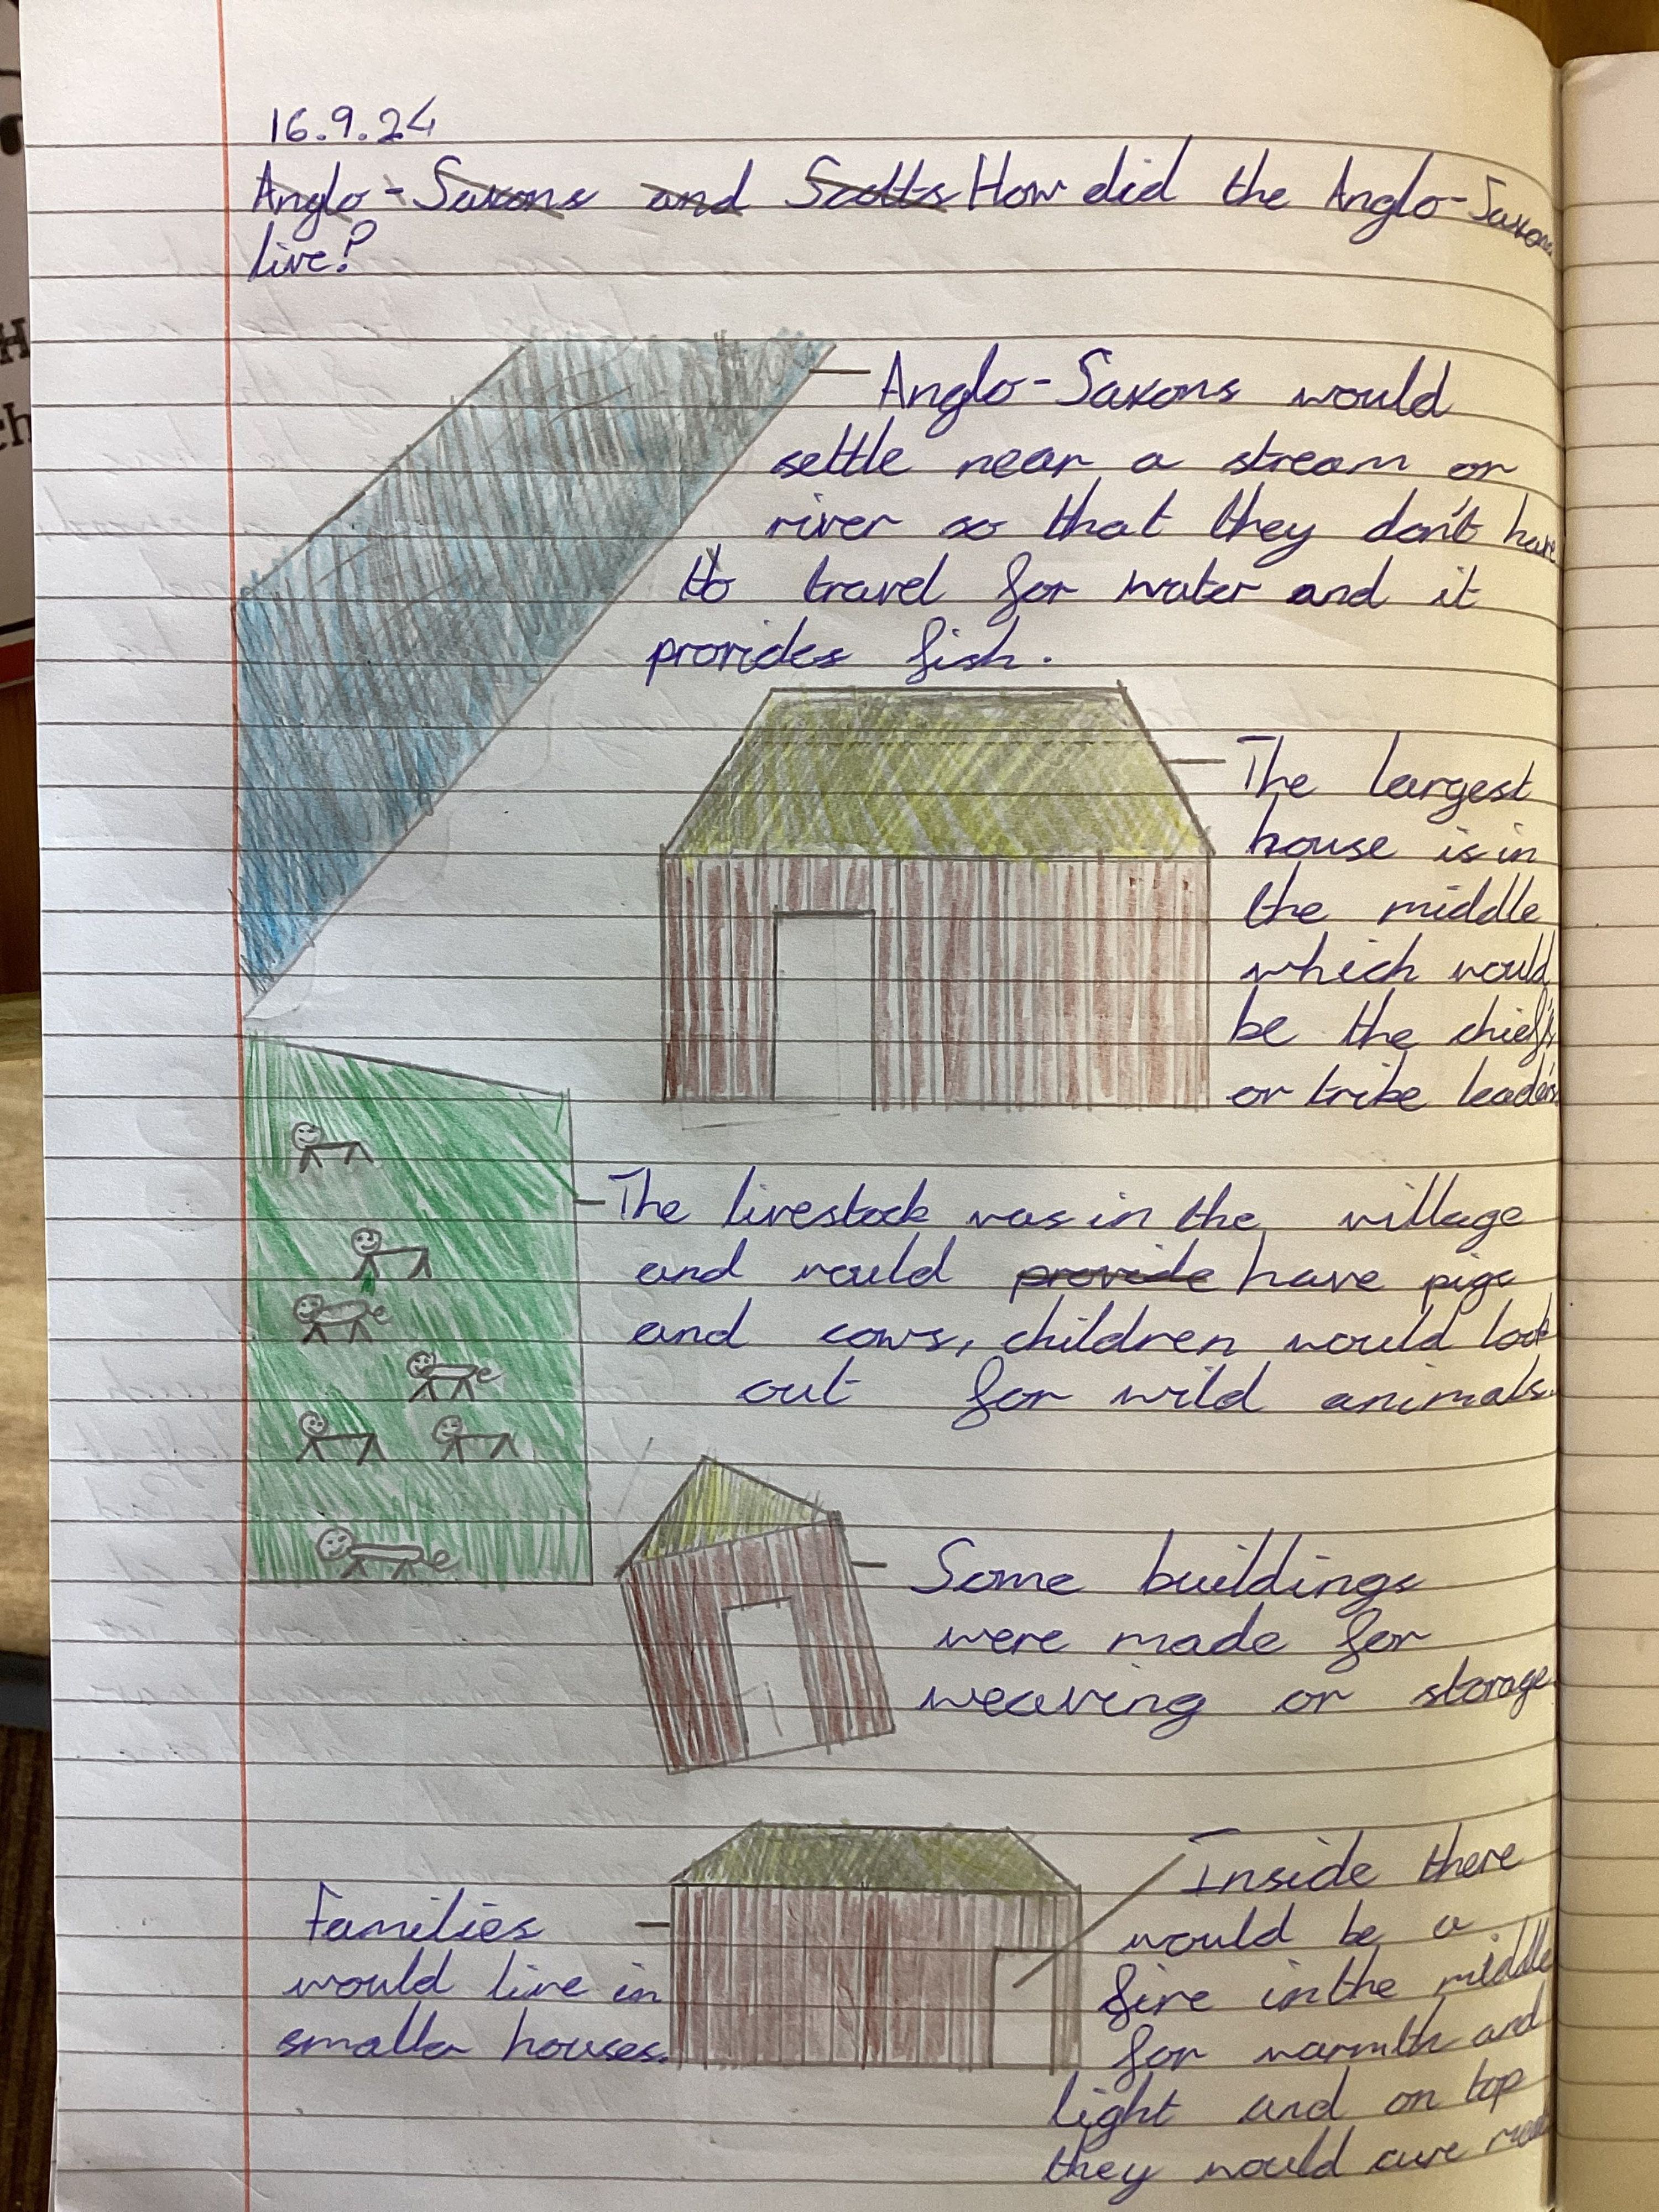 16.9.24
Anglo-Saxons and Scotts How did the Anglo-Saxons
live?
Anglo-Saxons would
settle near a stream or
river so that they don't have
to travel for water and it
provides fish.
The largest
house is in
the middle
which would
be the chief's
or tribe leader's
The livestock was in the village
and would provide have pigs
and cows, children would look
out for wild animals.
Some buildings
were made for
weaving or storage.
Families
would live in
smaller houses.
Inside there
would be a
fire in the middle
for warmth and
light and on top
they would cure